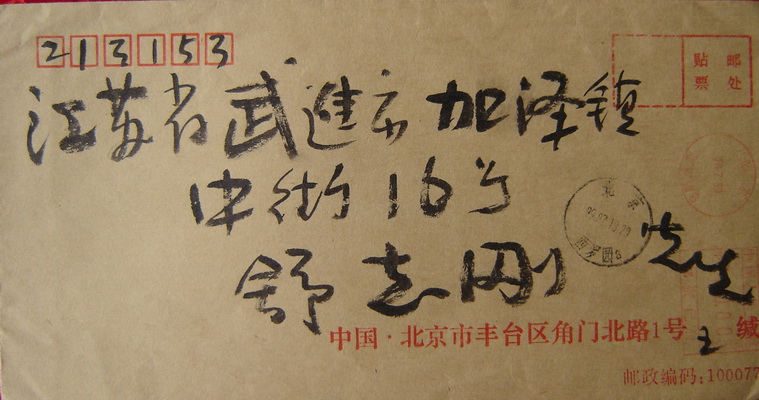 213153
邮 贴
处 票
江苏省武進市加泽镇
中街16号
北京
舒志刚 先生
中国·北京市丰台区角门北路1号 王 缄
邮政编码:100077